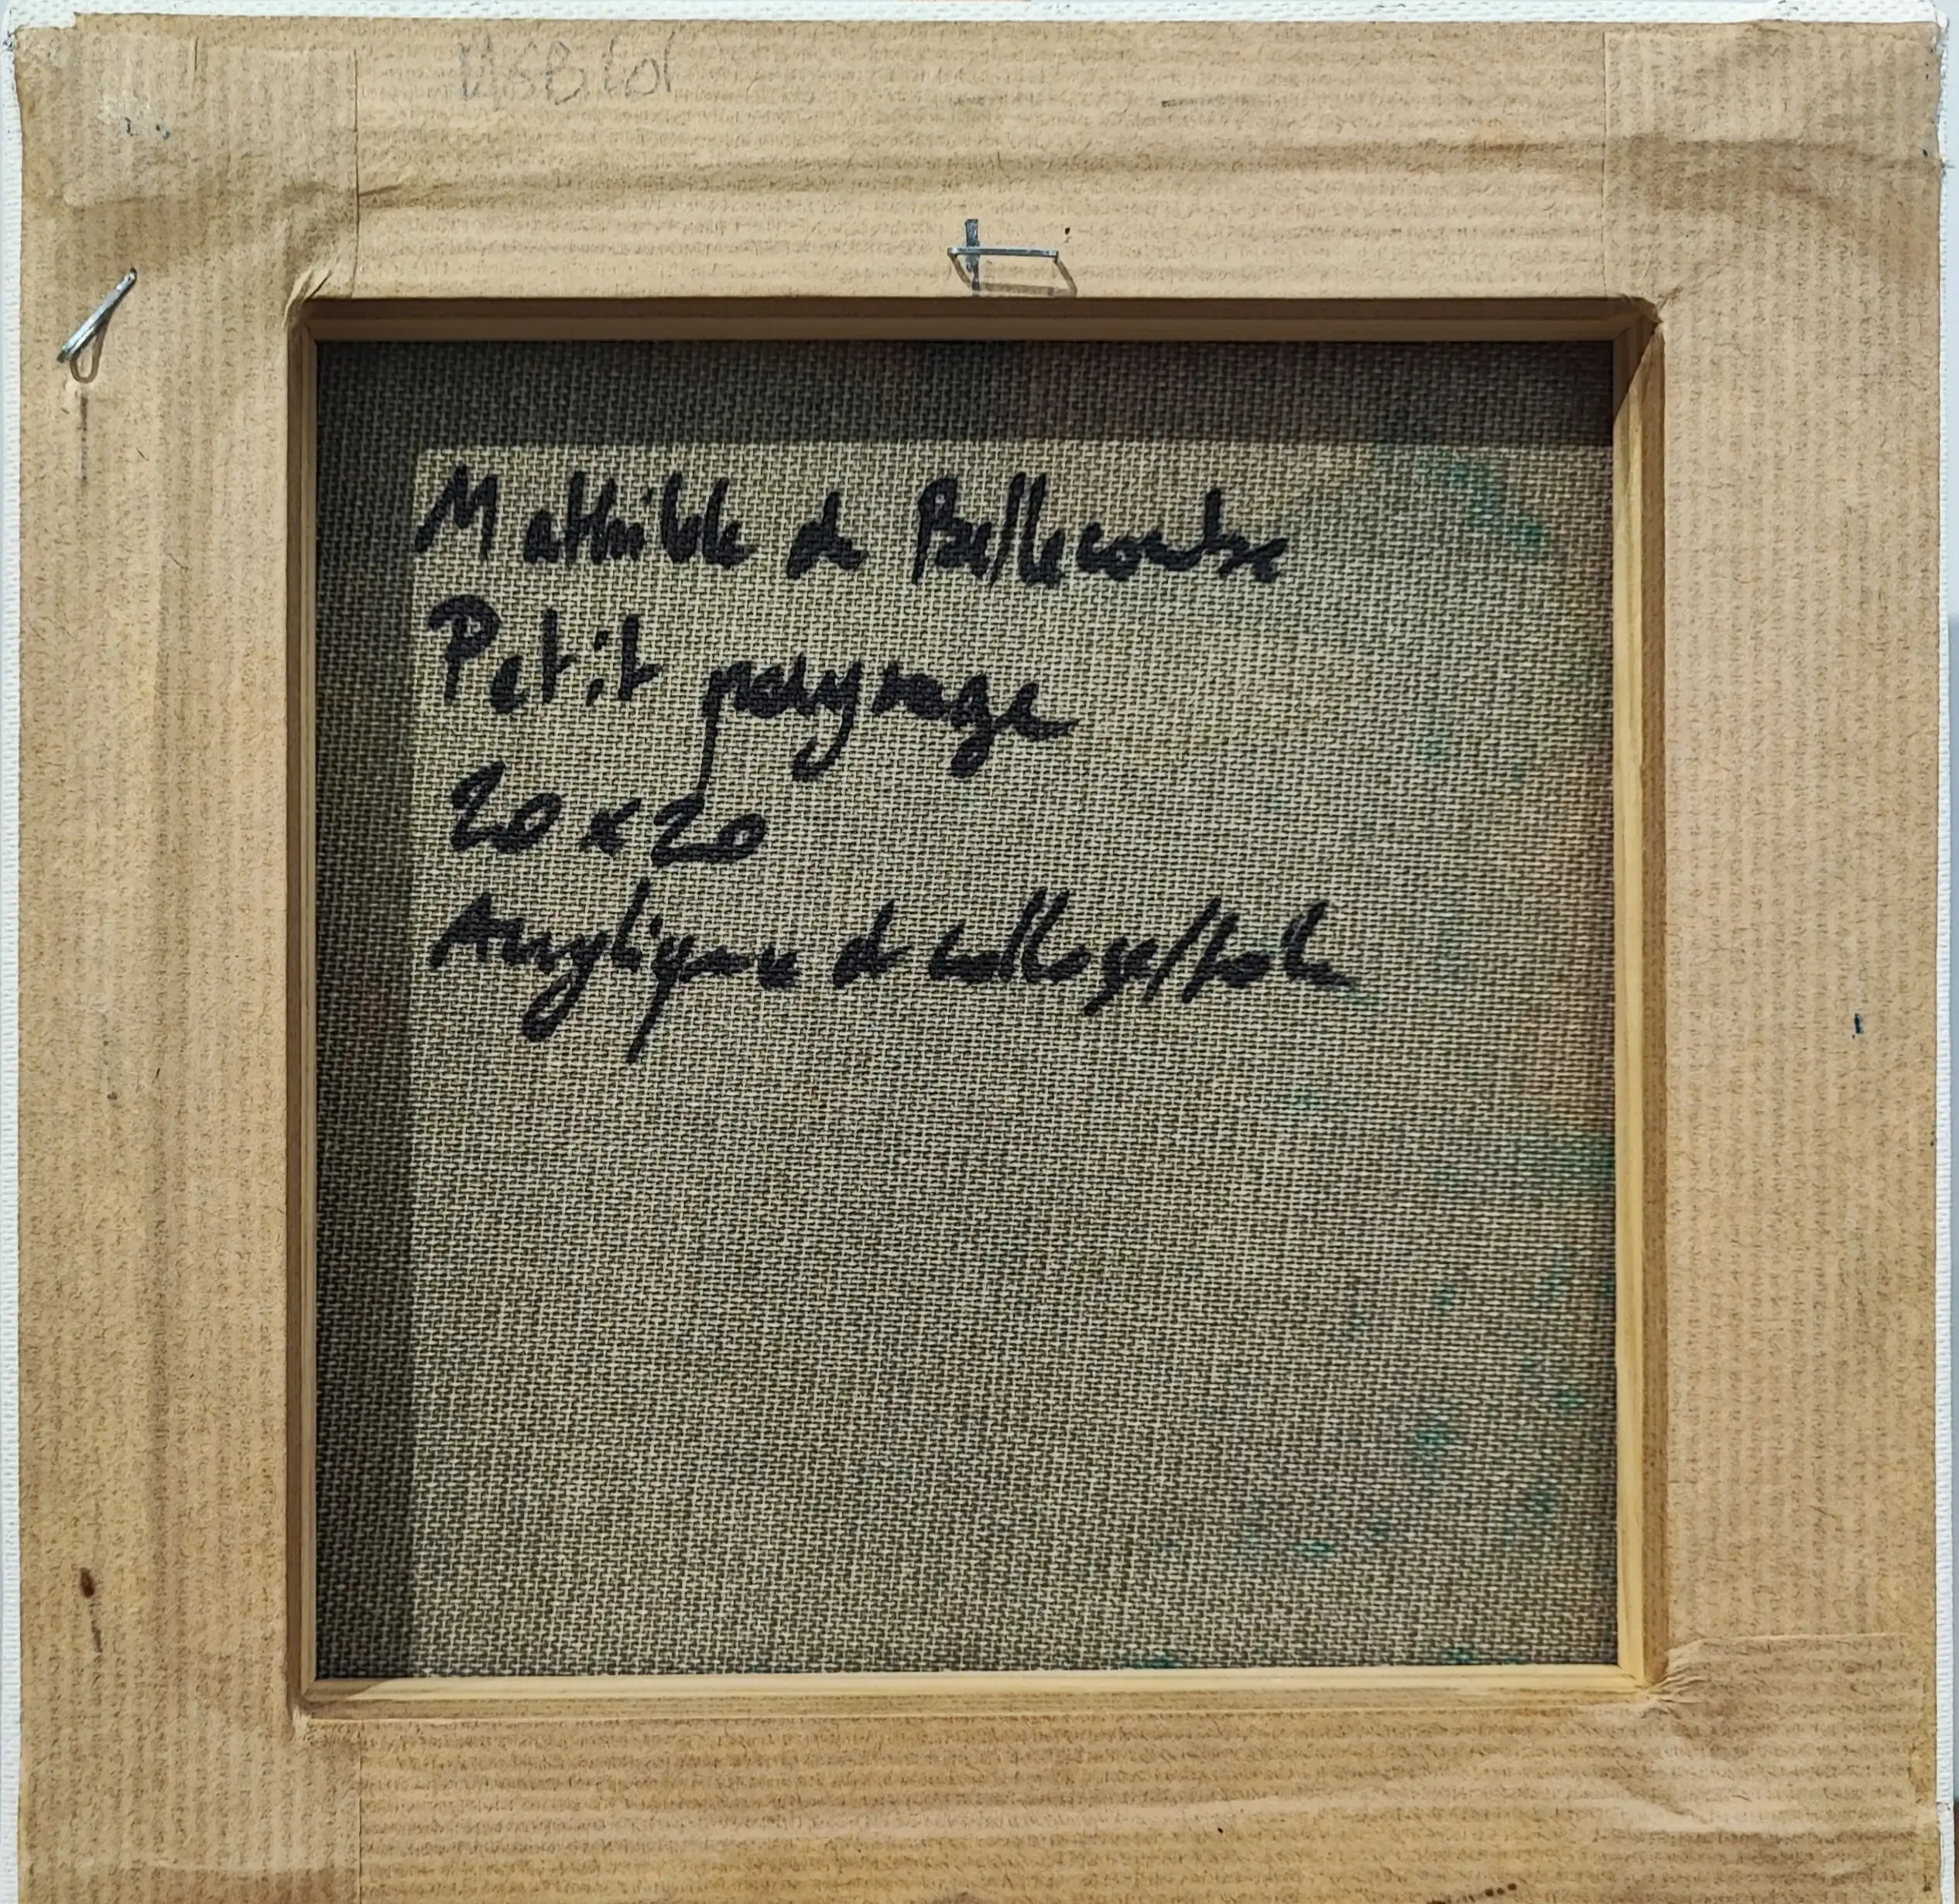 Mathilde de Bellecombe
Petit paysage
20 x 20
Acrylique et collage/toile